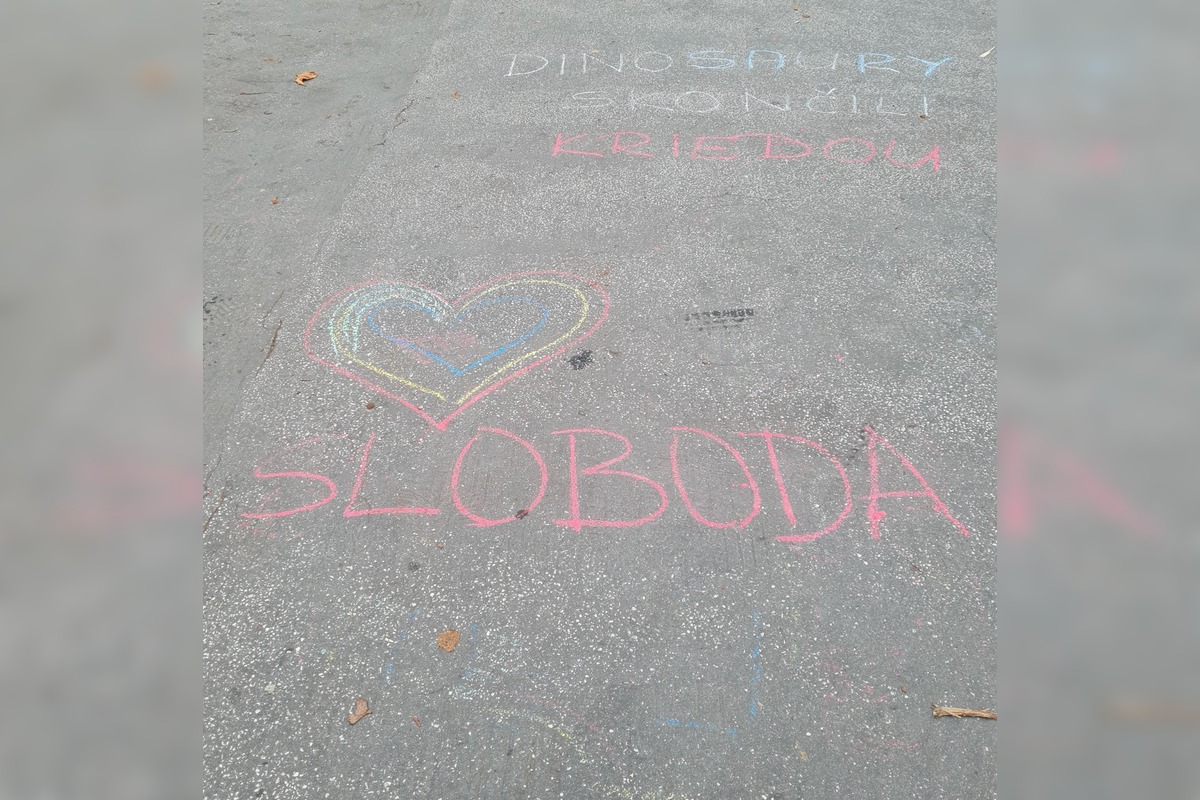 DINOSAURY
SKONČILI
KRIEDOU
SLOBODA